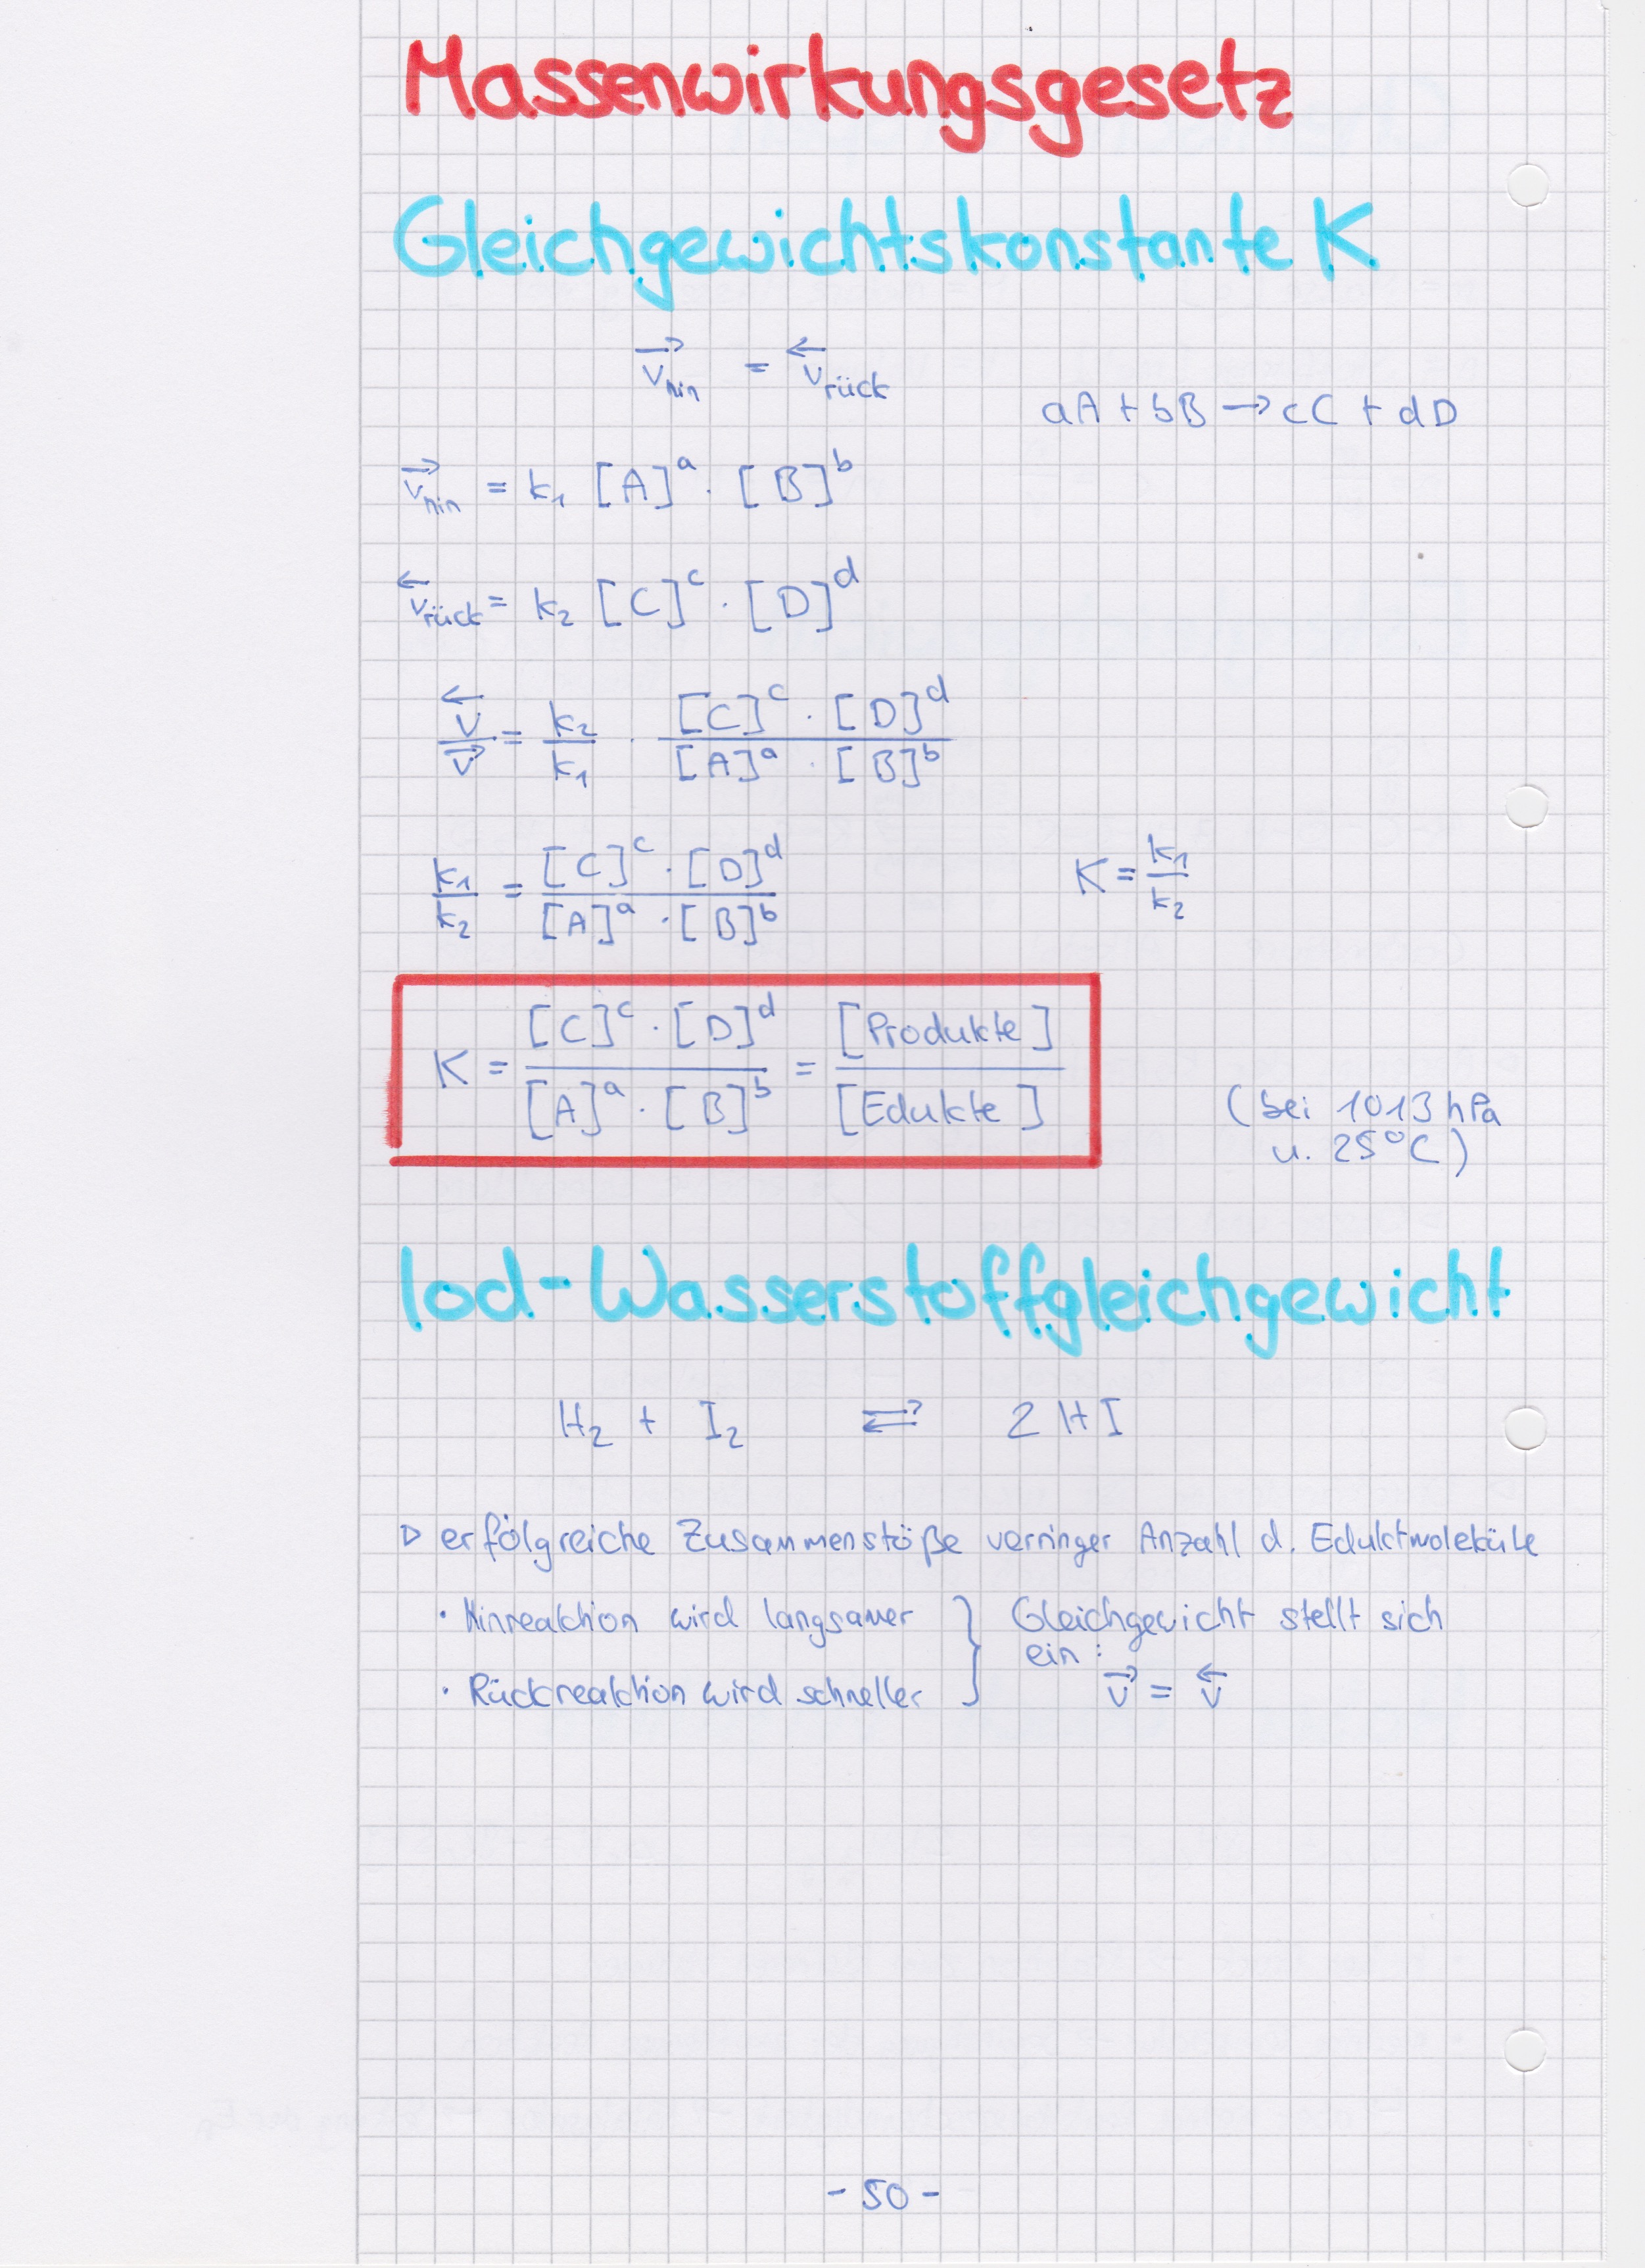 Massenwirkungsgesetz
Gleichgewichtskonstante K
v⃗hin = v⃖rück
aA + bB → cC + dD
v⃗hin = k₁ [A]ᵃ · [B]ᵇ
v⃖rück = k₂ [C]ᶜ · [D]ᵈ
v⃖/v⃗ = k₂/k₁ · [C]ᶜ · [D]ᵈ / [A]ᵃ · [B]ᵇ
k₁/k₂ = [C]ᶜ · [D]ᵈ / [A]ᵃ · [B]ᵇ
K = k₁/k₂
K = [C]ᶜ · [D]ᵈ / [A]ᵃ · [B]ᵇ = [Produkte] / [Edukte]
(bei 1013 hPa
u. 25°C)
Iod-Wasserstoffgleichgewicht
H₂ + I₂ ⇄ 2 HI
▷ erfolgreiche Zusammenstöße verringer Anzahl d. Eduktmoleküle
· Hinreaktion wird langsamer
· Rückreaktion wird schneller
} Gleichgewicht stellt sich
ein:
v⃗ = v⃖
- 50 -